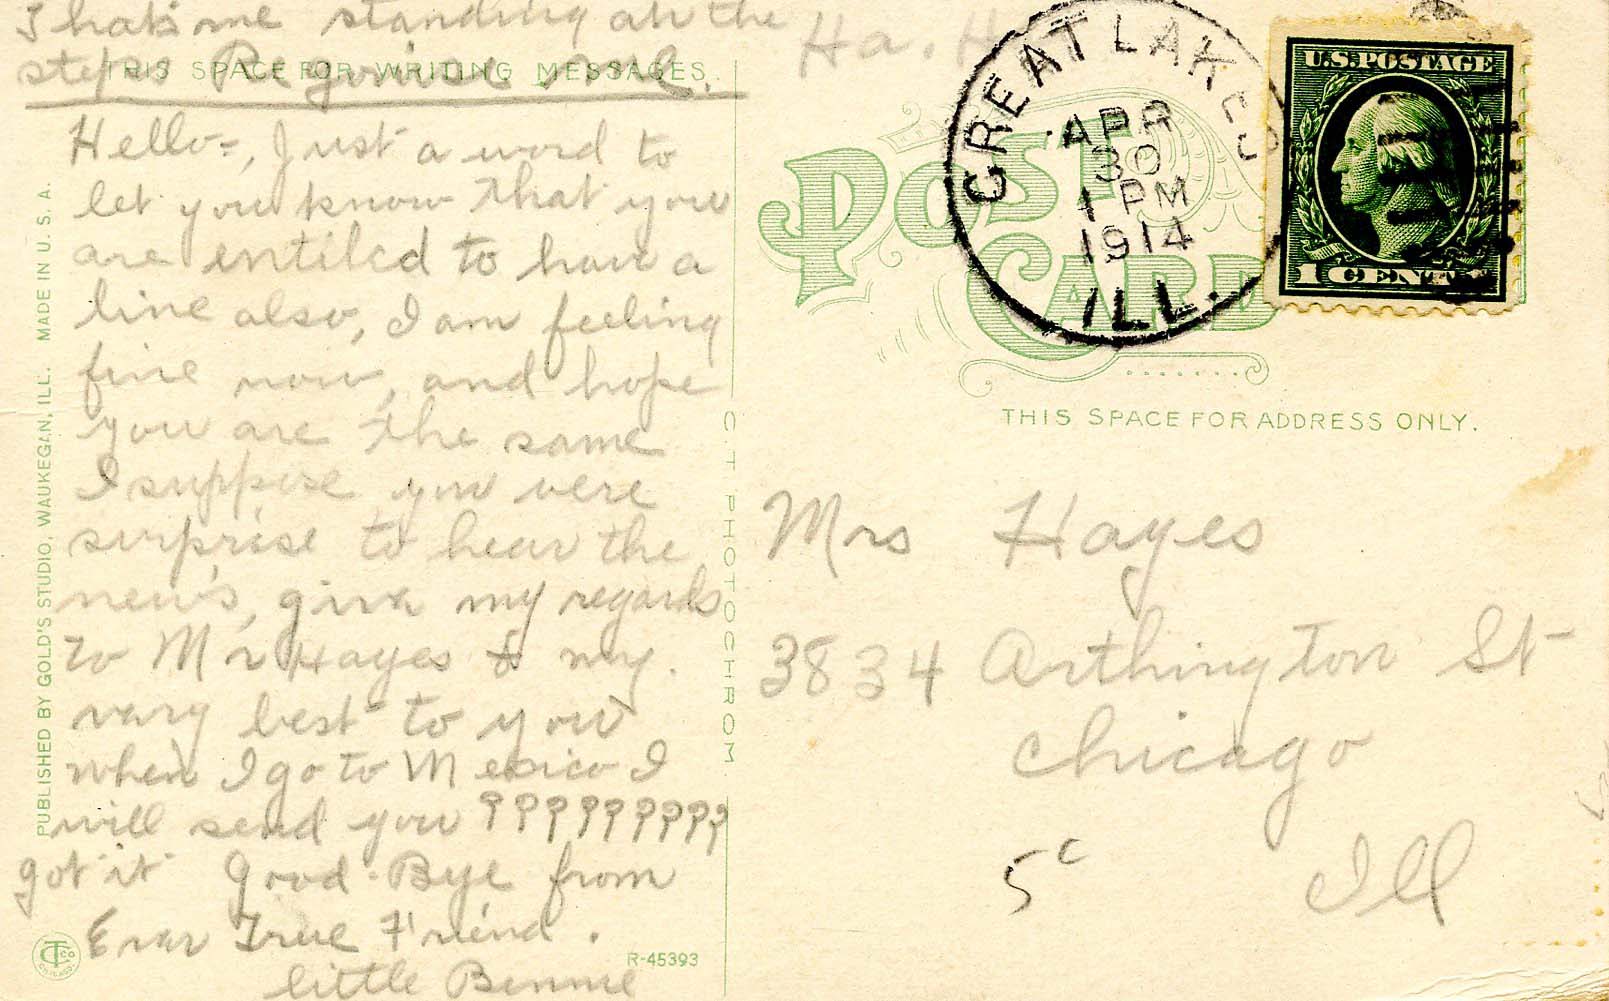 That's me standing on the Ha. H
steps Recognise me.
THIS SPACE FOR WRITING MESSAGES.
Hello=, Just a word to
let you know that you
are entiled to have a
line also, I am feeling
fine now, and hope
you are the same
I suppose you were
surprise to hear the
new's, give my regards
to Mr Hayes & my.
vary best to you
when I go to Mexico I
will send you ?????????
got it Good-Bye from
Ever True Friend.
little Bennie
PUBLISHED BY GOLD'S STUDIO, WAUKEGAN, ILL. MADE IN U. S. A.
C. T. PHOTOCHROM
CT Co
CHICAGO
R-45393
POST CARD
GREAT LAKES
APR
30
1 PM
1914
ILL.
U.S. POSTAGE
1 CENT 1
THIS SPACE FOR ADDRESS ONLY.
Mrs Hayes
3834 Arthington St
Chicago
5c Ill